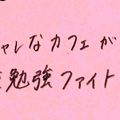 ャレなカフェが
勉強ファイト